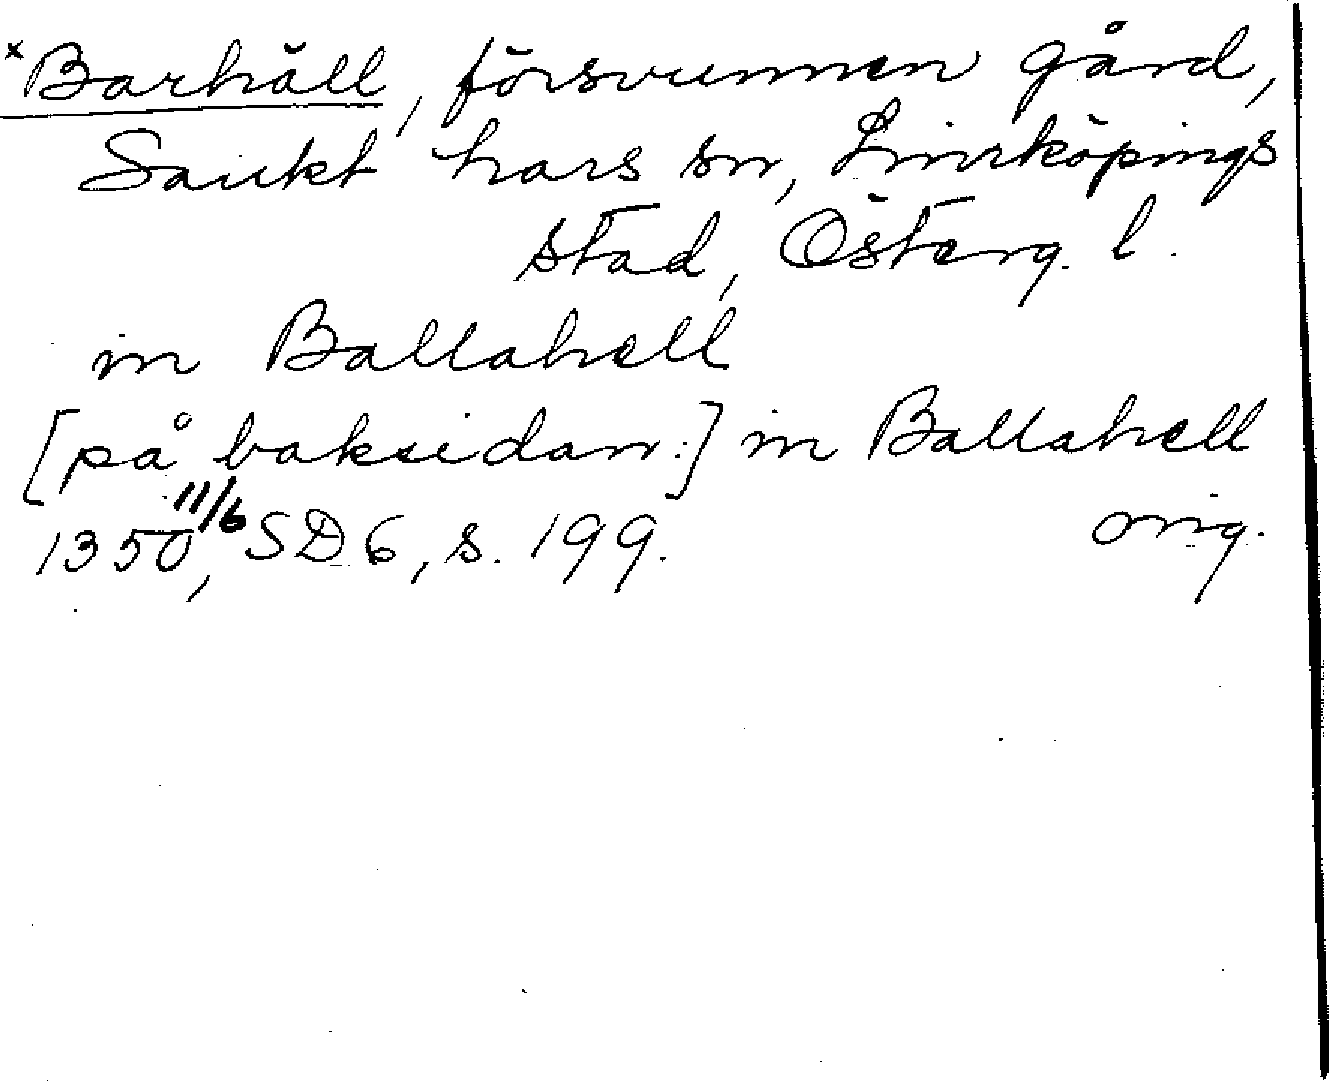 *Barhäll, försvunnen gård,
Sankt Lars sn, Linköpings
stad, Österg. l.
in Ballahell
[på baksidan:] in Ballahell
1350 11/6, SD 6, s. 199. orig.